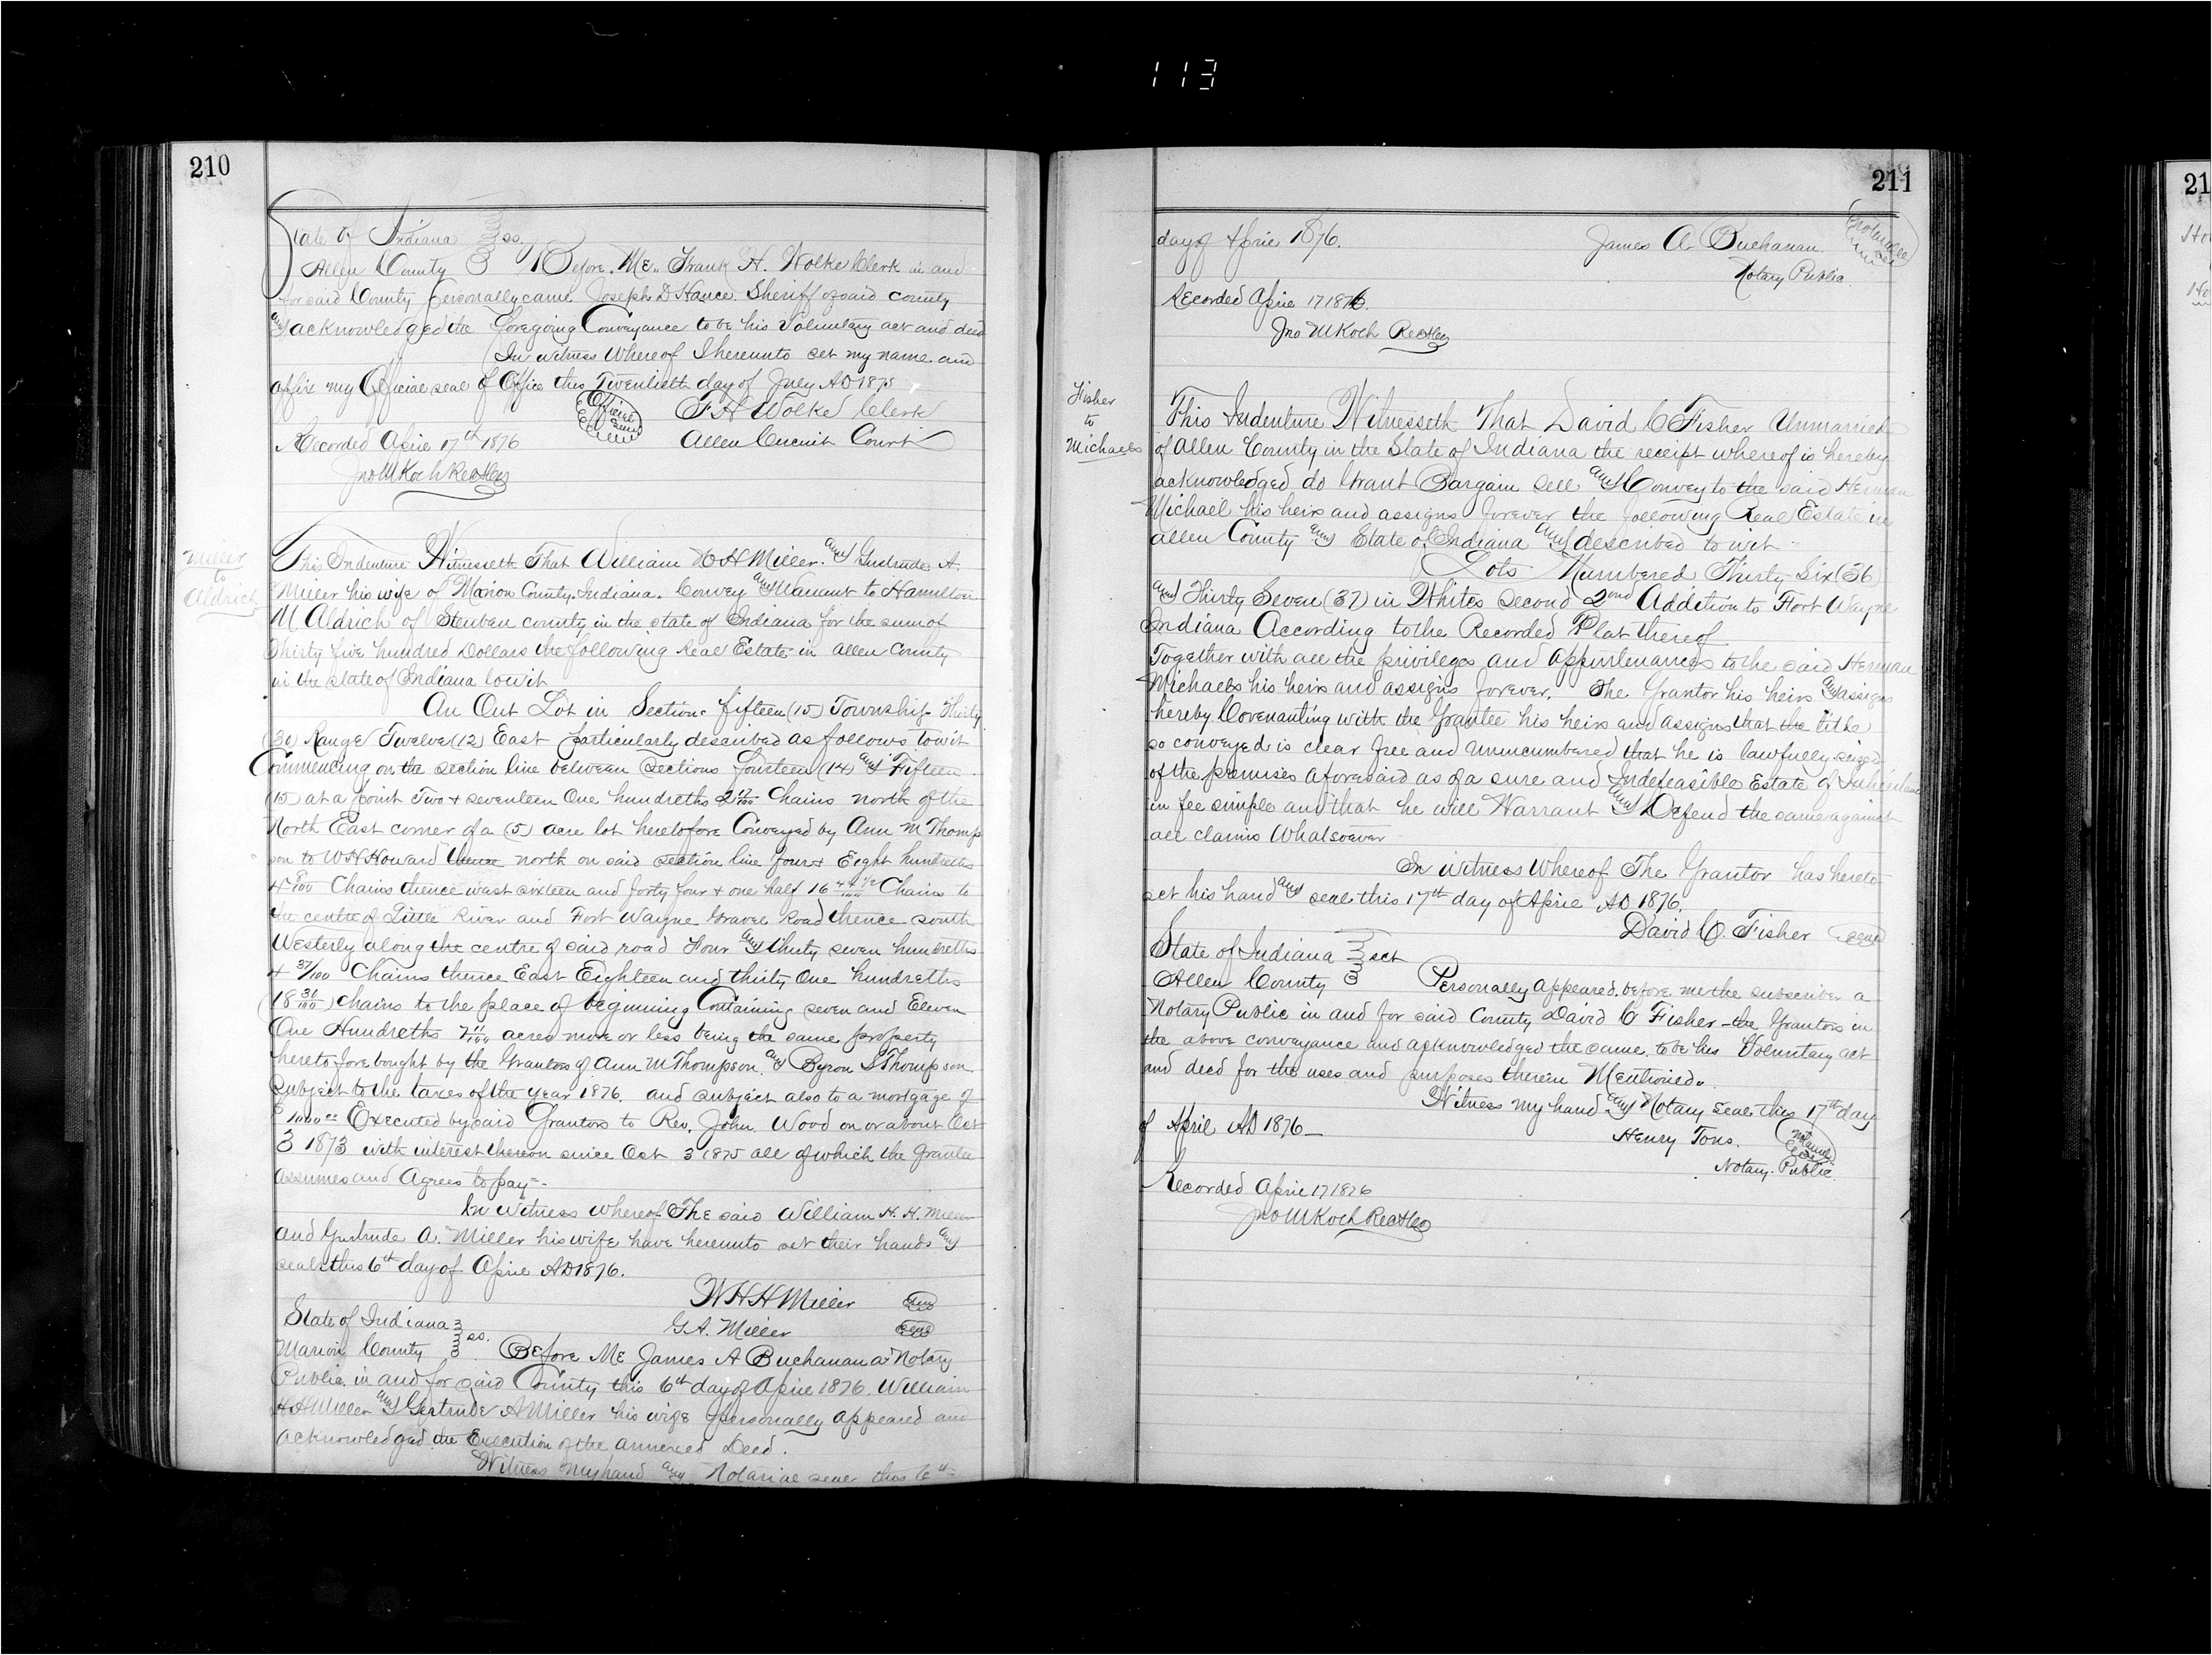 113
210
State of Indiana } ss.
Allen County } Before Me Frank H. Wolke Clerk in and
for said County personally came Joseph D Hance Sheriff of said county
and acknowledged the foregoing Conveyance to be his Voluntary act and deed
In witness Whereof I hereunto set my name and
affix my Official seal of Office this Twentieth day of July AD 1875
Official Seal
F H Wolke Clerk
Recorded April 17th 1876
Allen Circuit Court
Jno M Koch Rec
Miller
to
Aldrich
This Indenture Witnesseth That William H H Miller and Gertrude A.
Miller his wife of Marion County Indiana. Convey and Warrant to Hamilton
M Aldrich of Steuben county in the state of Indiana for the sum of
Thirty five hundred Dollars the following Real Estate in Allen County
in the state of Indiana towit
An Out Lot in Section fifteen (15) Township Thirty
(30) Range Twelve (12) East particularly described as follows Towit
Commencing on the section line between Sections fourteen (14) and Fifteen
(15) at a point Two & seventeen One hundreths 2 17/100 Chains north of the
North East corner of a (5) acre lot heretofore Conveyed by Ann M Thomp
son to W H Howard thence north on said section line four & Eight hundreths
4 8/100 Chains thence west sixteen and forty four & one half 16 44 1/2/100 Chains to
the centre of Little River and Fort Wayne Gravel Road thence south
Westerly along the centre of said road Four and Thirty seven hundreths
4 37/100 Chains thence East Eighteen and thirty One hundreths
(18 31/100) chains to the place of beginning Containing seven and Eleven
One Hundreths 7 11/100 acres more or less being the same property
heretofore bought by the Grantors of Ann M Thompson and Byron S Thompson
subject to the taxes of the year 1876. and subject also to a mortgage of
$1000.00 Executed by said Grantors to Rev. John Wood on or about Oct
3 1873 with interest thereon since Oct 3 1875 all of which the Grantee
assumes and Agrees to pay
In witness whereof The said William H. H. Miller
and Gertrude A. Miller his wife have hereunto set their hands and
seals this 6th day of April AD 1876.
W H H Miller Seal
G. A. Miller Seal
State of Indiana } ss.
Marion County } Before Me James A Buchanan a Notary
Public in and for said County this 6th day of April 1876. William
H H Miller and Gertrude A Miller his wife personally appeared and
acknowledged the Execution of the annexed Deed.
Witness my hand and Notarial seal this 6th
211
day of April 1876.
James A Buchanan
Notary Public
Notarial Seal
Recorded April 17 1876.
Jno M Koch Rec
Fisher
to
Michaels
This Indenture Witnesseth That David C Fisher Unmarried
of Allen County in the State of Indiana the receipt whereof is hereby
acknowledged do Grant Bargain sell and Convey to the said Herman
Michael his heirs and assigns forever the following Real Estate in
allen County and State of Indiana and described to wit
Lots Numbered Thirty Six (36)
and Thirty Seven (37) in Whites Second 2nd Addition to Fort Wayne
Indiana According to the Recorded Plat thereof
Together with all the privileges and appurtenances to the said Herman
Michaels his heirs and assigns forever. The Grantor his heirs and assigns
hereby Covenanting with the Grantee his heirs and assigns that the title
so conveyed is clear free and Unincumbered that he is lawfully seized
of the premises aforesaid as of a sure and Indefeasible Estate of Inheritance
in fee simple and that he will Warrant and Defend the same against
all claims Whatsoever
In witness Whereof The Grantor has hereto
set his hand and seal this 17th day of April AD 1876.
David C. Fisher Seal
State of Indiana } sct
Allen County } Personally appeared before me the subscriber a
Notary Public in and for said County David C Fisher the Grantor in
the above conveyance and acknowledged the same to be his Voluntary act
and deed for the uses and purposes therein Mentioned.
Witness my hand and Notary Seal this 17th day
of April AD 1876
Henry Tons.
Notary Public
Recorded April 17 1876
Jno M Koch Rec
21